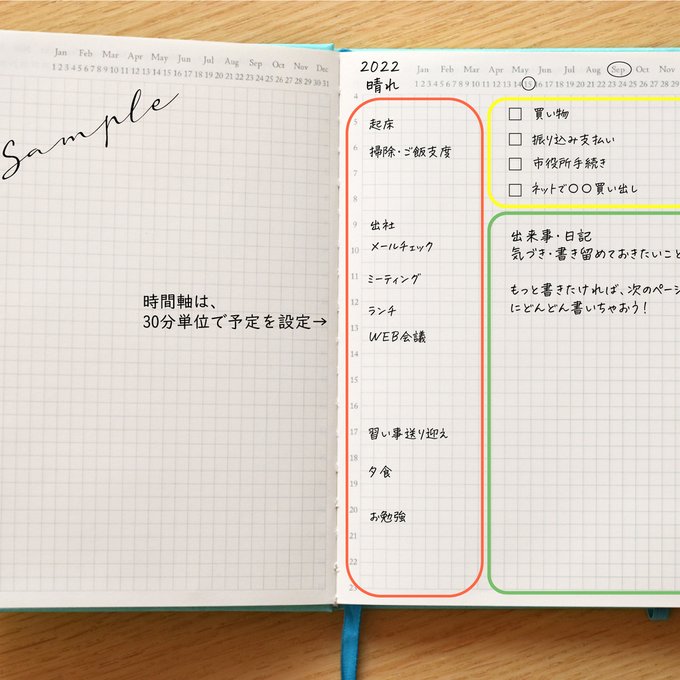 Jan Feb Mar Apr May Jun Jul Aug Sep Oct Nov Dec
1 2 3 4 5 6 7 8 9 10 11 12 13 14 15 16 17 18 19 20 21 22 23 24 25 26 27 28 29 30 31
Sample
時間軸は、
30分単位で予定を設定→
2022
晴れ
Jan Feb Mar Apr May Jun Jul Aug Sep Oct
1 2 3 4 5 6 7 8 9 10 11 12 13 14 15 16 17 18 19 20 21 22 23 24 25 26
4
5 起床
6 掃除・ご飯支度
7
8
9 出社
メールチェック
10
11 ミーティング
12 ランチ
13 WEB会議
14
15
16
17 習い事送り迎え
18 夕食
19
20 お勉強
21
22
23
買い物
振り込み支払い
市役所手続き
ネットで〇〇買い出し
出来事・日記
気づき・書き留めておきたいこと
もっと書きたければ、次のページ
にどんどん書いちゃおう!